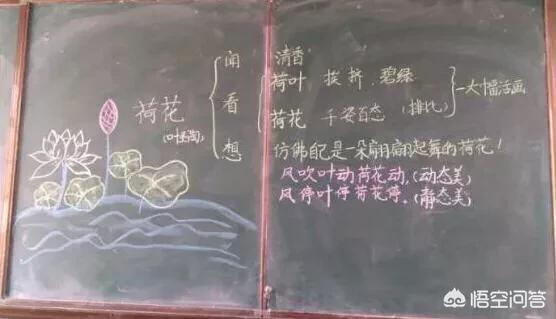 荷花
(叶圣陶)
闻
看
想
清香
荷叶 挨挤 碧绿
荷花 千姿百态 (排比)
一大幅活画
仿佛自己是一朵翩翩起舞的荷花!
风吹叶动荷花动,(动态美)
风停叶停荷花停。(静态美)
悟空问答